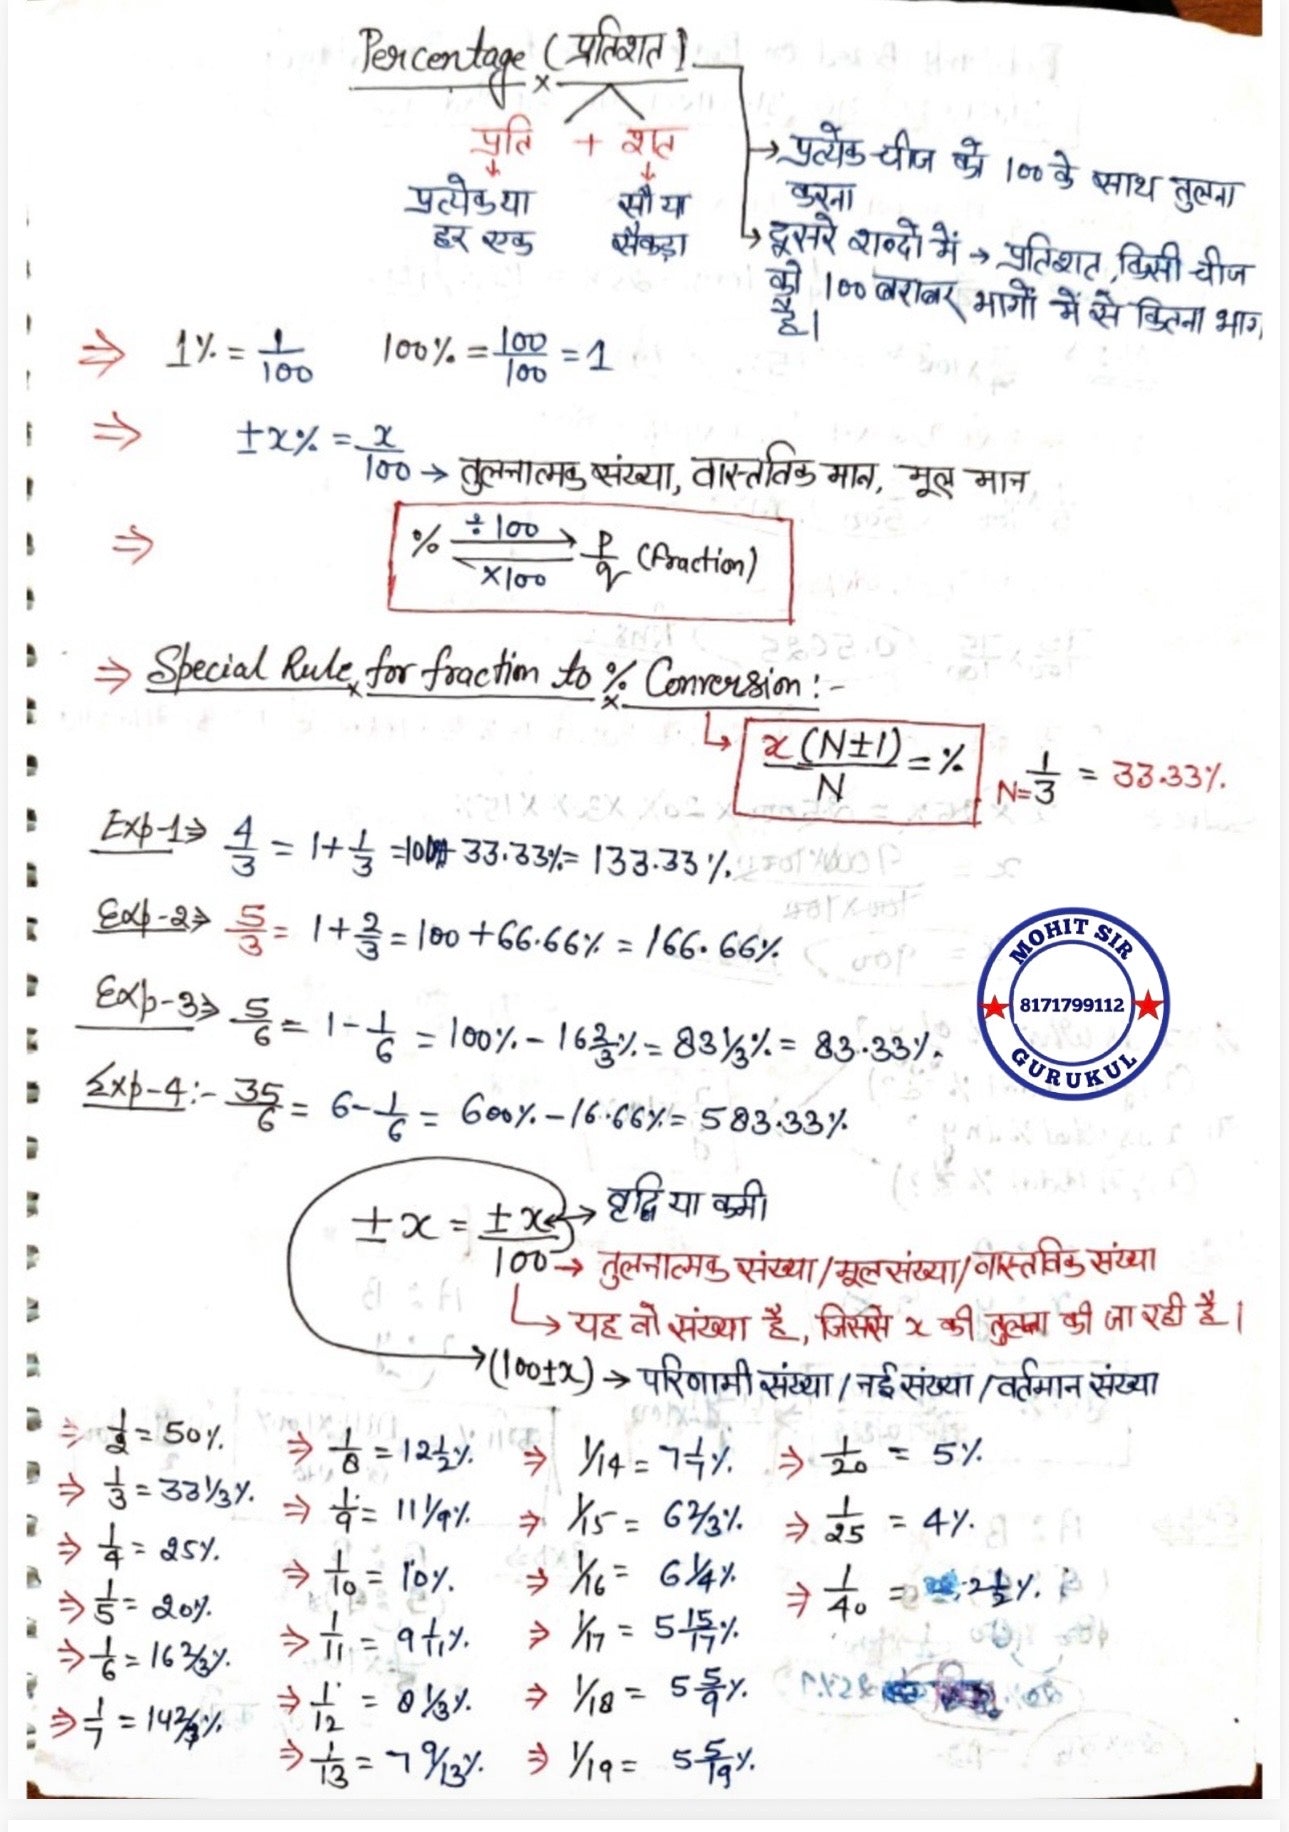 Percentage (प्रतिशत)
प्रति + शत
प्रत्येक या
हर एक
सौ या
सैकड़ा
→ प्रत्येक चीज को 100 के साथ तुलना
करना
→ दूसरे शब्दों में → प्रतिशत, किसी चीज
को 100 बराबर भागों में से कितना भाग
है।
⇒ 1% = 1/100 100% = 100/100 = 1
⇒ ±x% = x/100 → तुलनात्मक संख्या, वास्तविक मान, मूल मान
⇒ % ÷100 ×100 p/q (fraction)
⇒ Special Rule for fraction to % Conversion :-
x(N±1)/N = % N = 1/3 = 33.33%
Exp-1⇒ 4/3 = 1 + 1/3 = 100+ 33.33% = 133.33%
Exp-2⇒ 5/3 = 1 + 2/3 = 100 + 66.66% = 166.66%
Exp-3⇒ 5/6 = 1 - 1/6 = 100% - 16 2/3% = 83 1/3% = 83.33%
Exp-4:- 35/6 = 6 - 1/6 = 600% - 16.66% = 583.33%
MOHIT SIR
8171799112
GURUKUL
±x = ±x/100 → वृद्धि या कमी
→ तुलनात्मक संख्या/मूल संख्या/वास्तविक संख्या
→ यह वो संख्या है, जिससे x की तुलना की जा रही है।
→ (100±x) → परिणामी संख्या/नई संख्या/वर्तमान संख्या
⇒ 1/2 = 50%
⇒ 1/3 = 33 1/3%
⇒ 1/4 = 25%
⇒ 1/5 = 20%
⇒ 1/6 = 16 2/3%
⇒ 1/7 = 14 2/7%
⇒ 1/8 = 12 1/2%
⇒ 1/9 = 11 1/9%
⇒ 1/10 = 10%
⇒ 1/11 = 9 1/11%
⇒ 1/12 = 8 1/3%
⇒ 1/13 = 7 9/13%
⇒ 1/14 = 7 1/7%
⇒ 1/15 = 6 2/3%
⇒ 1/16 = 6 1/4%
⇒ 1/17 = 5 15/17%
⇒ 1/18 = 5 5/9%
⇒ 1/19 = 5 5/19%
⇒ 1/20 = 5%
⇒ 1/25 = 4%
⇒ 1/40 = 2 1/2%